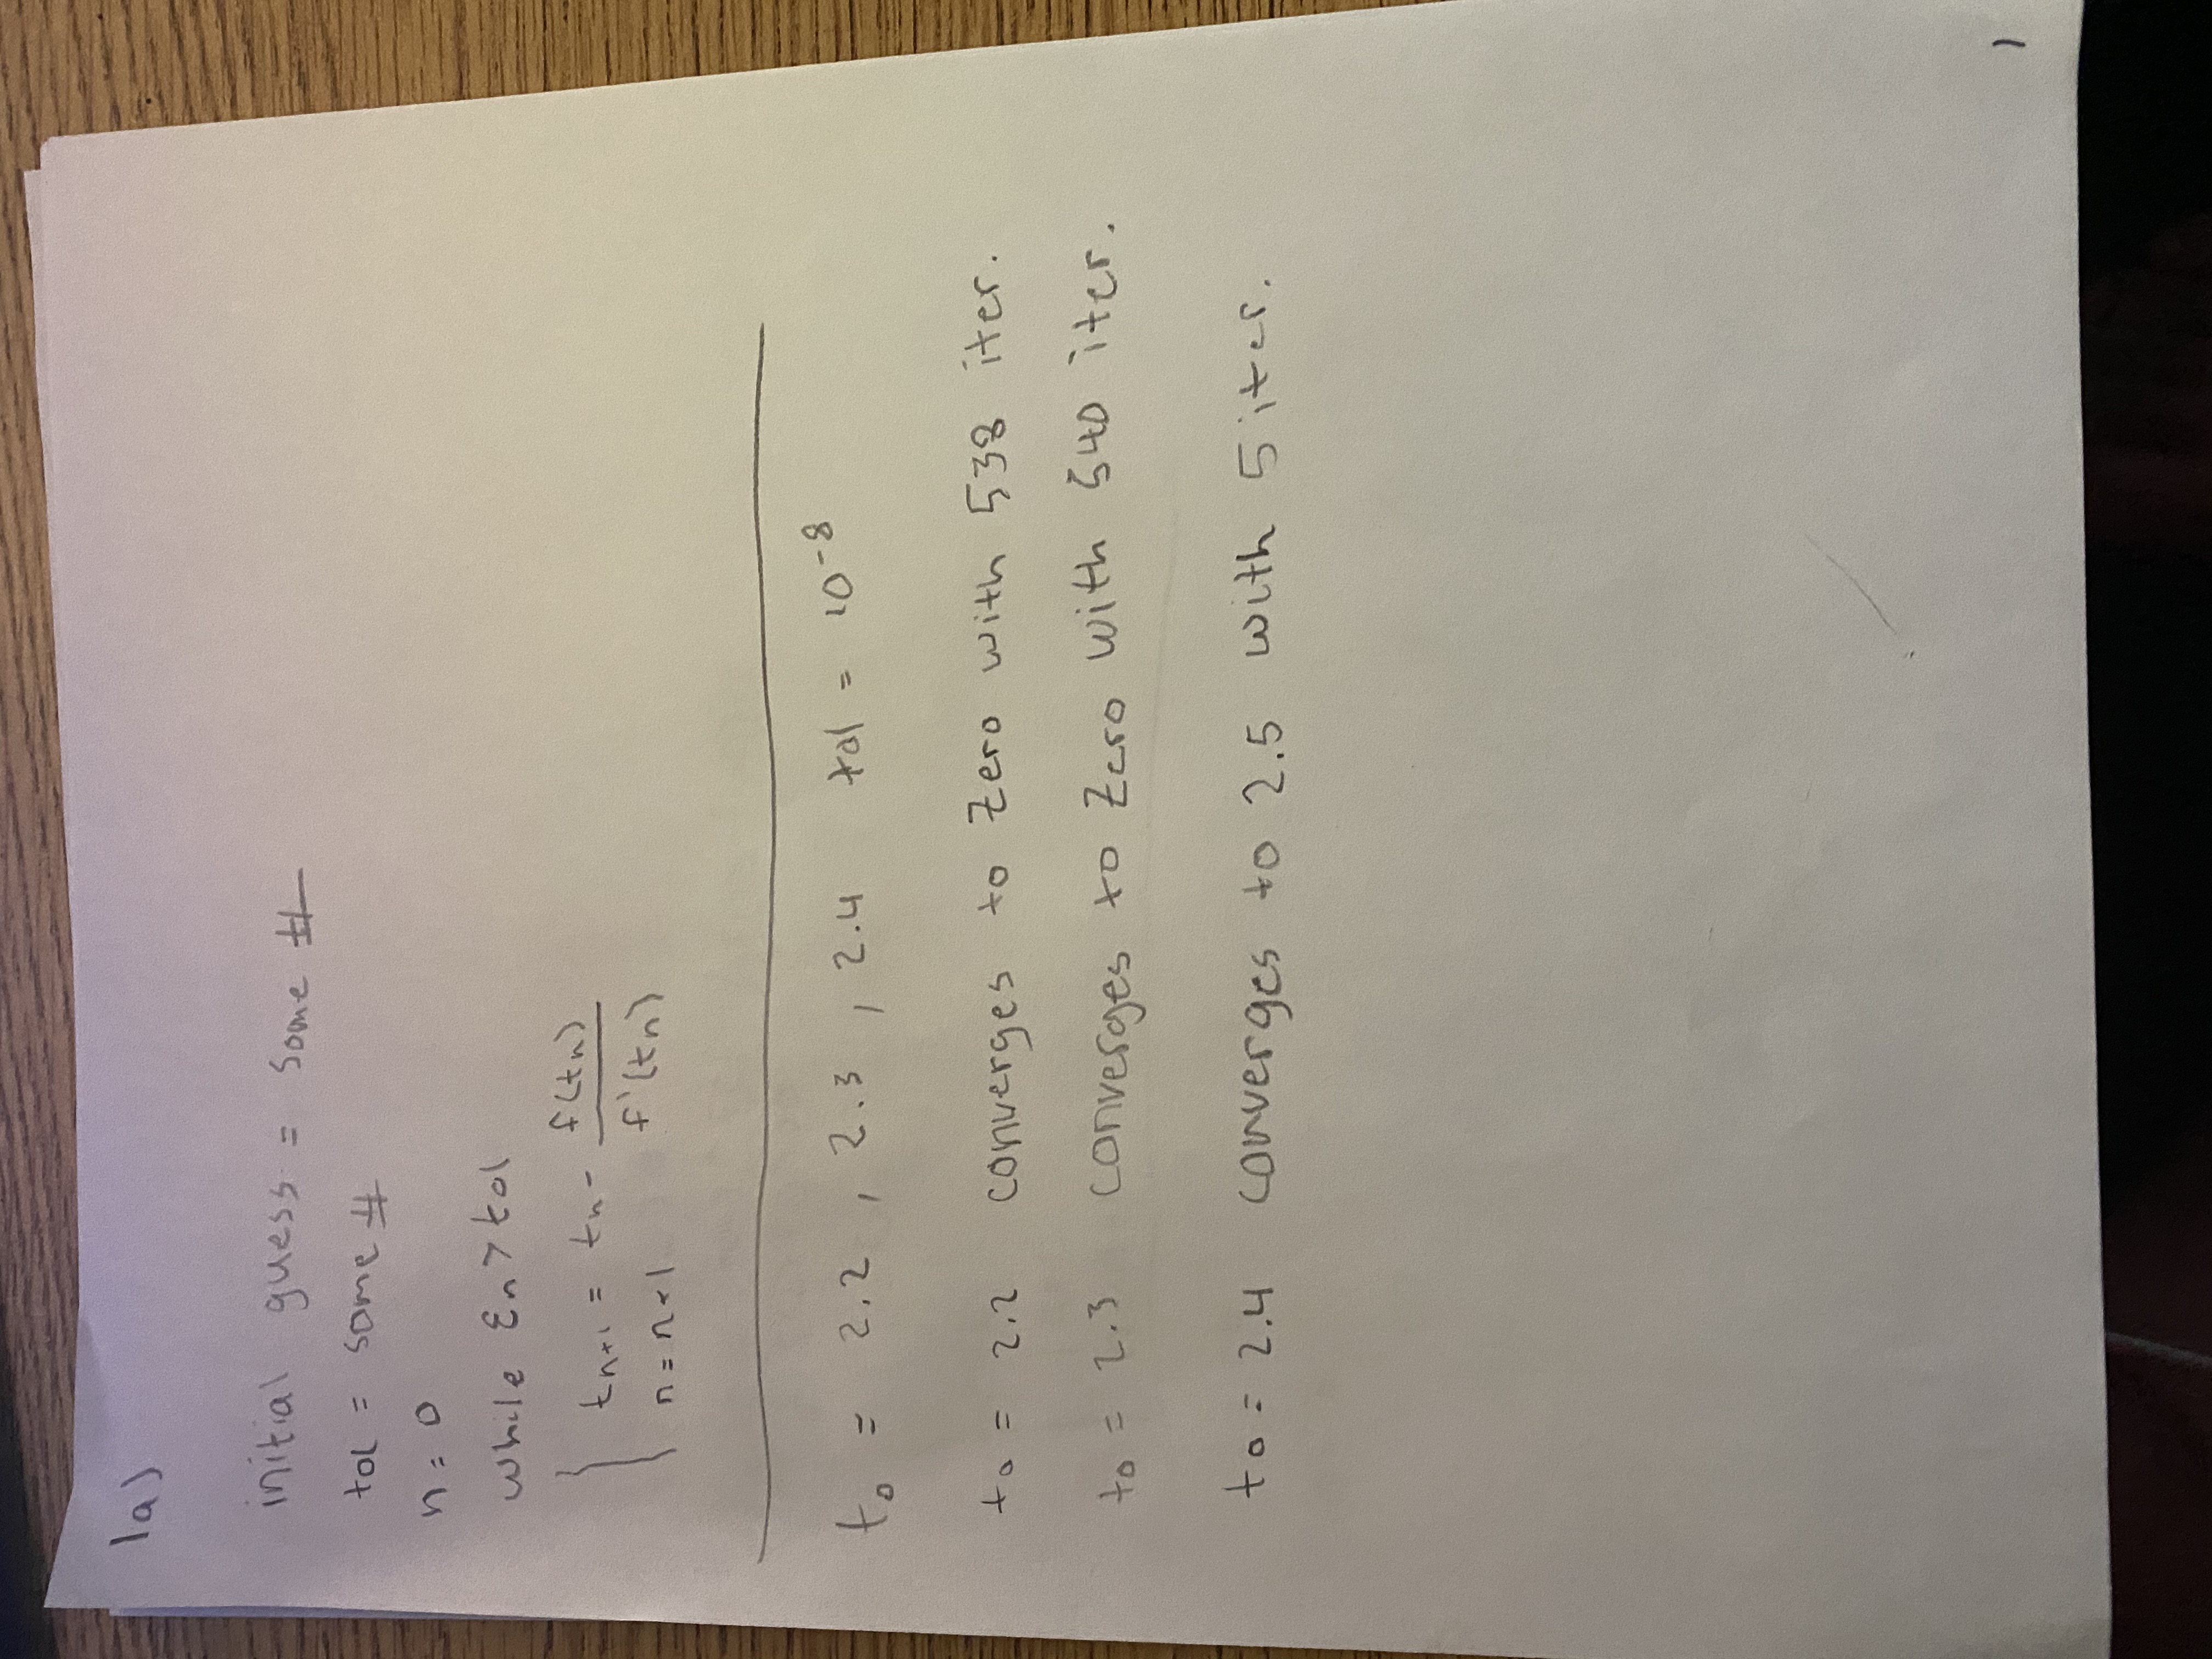 1a)
initial guess = some #
tol = some #
n = 0
while εn > tol
tn+1 = tn - f(tn) / f'(tn)
n = n+1
t0 = 2.2 , 2.3 , 2.4 tol = 10^-8
t0 = 2.2 converges to zero with 538 iter.
t0 = 2.3 converges to zero with 540 iter.
t0 = 2.4 converges to 2.5 with 5 iter.
1